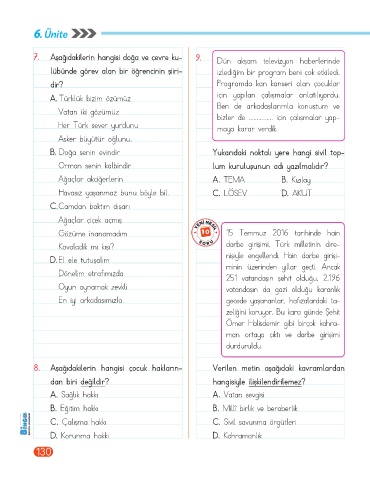 6. Ünite
7. Aşağıdakilerin hangisi doğa ve çevre ku-
lübünde görev alan bir öğrencinin şiiri-
dir?
A. Türklük bizim özümüz
Vatan iki gözümüz
Her Türk sever yurdunu
Asker büyütür oğlunu.
B. Doğa senin evindir
Orman senin kalbindir
Ağaçlar akciğerlerin
Havasız yaşanmaz bunu böyle bil.
C. Camdan baktım dışarı
Ağaçlar çiçek açmış
Gözüme inanamadım
Kovaladık mı kışı?
D. El ele tutuşalım
Dönelim etrafımızda
Oyun oynamak zevkli
En iyi arkadaşımızla.
8. Aşağıdakilerin hangisi çocuk hakların-
dan biri değildir?
A. Sağlık hakkı
B. Eğitim hakkı
C. Çalışma hakkı
D. Korunma hakkı
9. Dün akşam televizyon haberlerinde
izlediğim bir program beni çok etkiledi.
Programda kan kanseri olan çocuklar
için yapılan çalışmalar anlatılıyordu.
Ben de arkadaşlarımla konuştum ve
bizler de .............. için çalışmalar yap-
maya karar verdik.
Yukarıdaki noktalı yere hangi sivil top-
lum kuruluşunun adı yazılmalıdır?
A. TEMA B. Kızılay
C. LÖSEV D. AKUT
YENİ NESİL
10
SORU
15 Temmuz 2016 tarihinde hain
darbe girişimi, Türk milletinin dire-
nişiyle engellendi. Hain darbe girişi-
minin üzerinden yıllar geçti. Ancak
251 vatandaşın şehit olduğu, 2.196
vatandaşın da gazi olduğu karanlık
gecede yaşananlar, hafızalardaki ta-
zeliğini koruyor. Bu kara günde Şehit
Ömer Halisdemir gibi birçok kahra-
man ortaya çıktı ve darbe girişimi
durduruldu.
Verilen metin aşağıdaki kavramlardan
hangisiyle ilişkilendirilemez?
A. Vatan sevgisi
B. Millî birlik ve beraberlik
C. Sivil savunma örgütleri
D. Kahramanlık
BİNGO
130